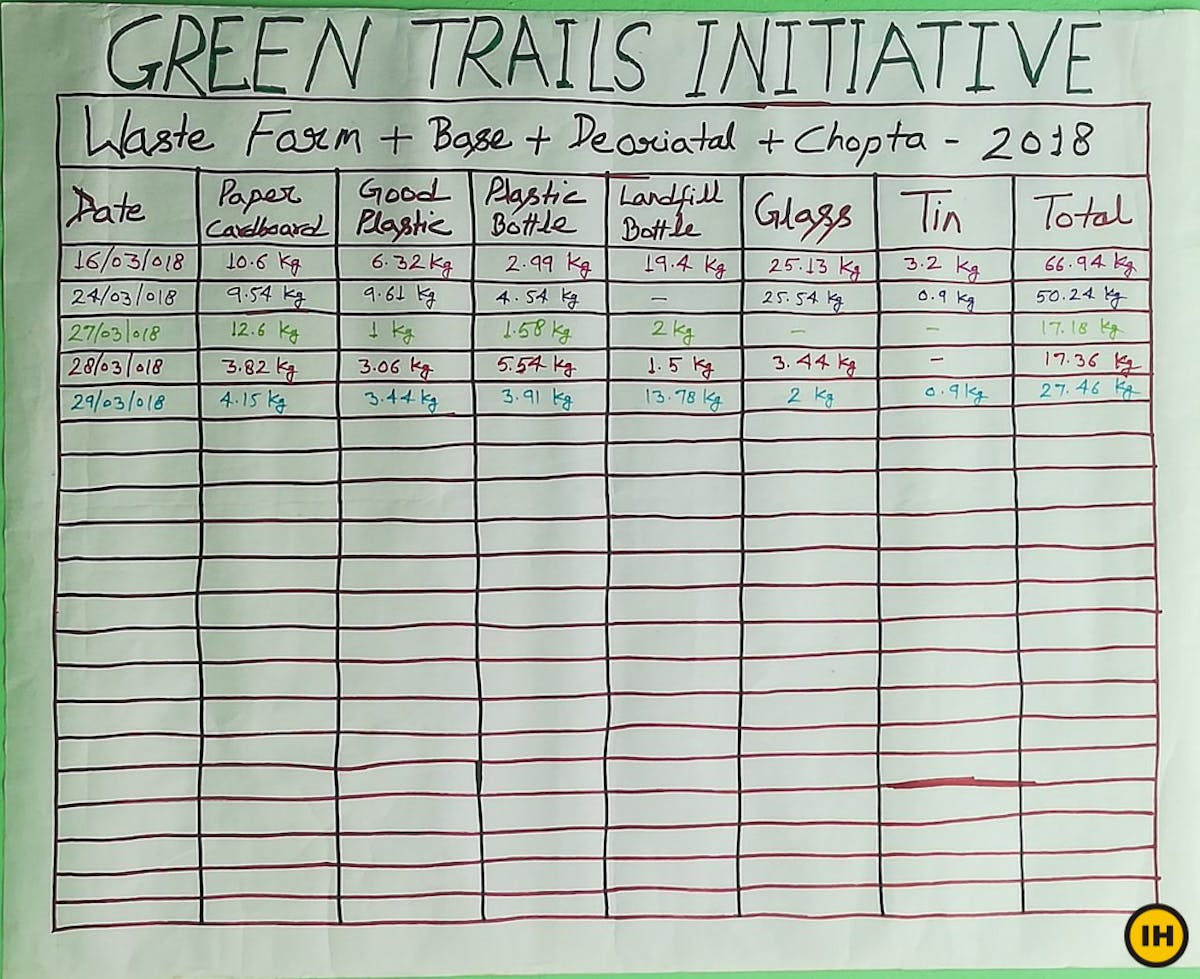 GREEN TRAILS INITIATIVE
Waste Farm + Base + Deoriatal + Chopta - 2018
Date Paper Cardboard Good Plastic Plastic Bottle Landfill Bottle Glass Tin Total
16/03/018 10.6 kg 6.32 kg 2.99 kg 19.4 kg 25.13 kg 3.2 kg 66.94 kg
24/03/018 9.54 kg 9.61 kg 4.54 kg - 25.54 kg 0.9 kg 50.24 kg
27/03/018 12.6 kg 1 kg 1.58 kg 2 kg - - 17.18 kg
28/03/018 3.82 kg 3.06 kg 5.54 kg 1.5 kg 3.44 kg - 17.36 kg
29/03/018 4.15 kg 3.44 kg 3.91 kg 13.78 kg 2 kg 0.9 kg 27.46 kg
IH